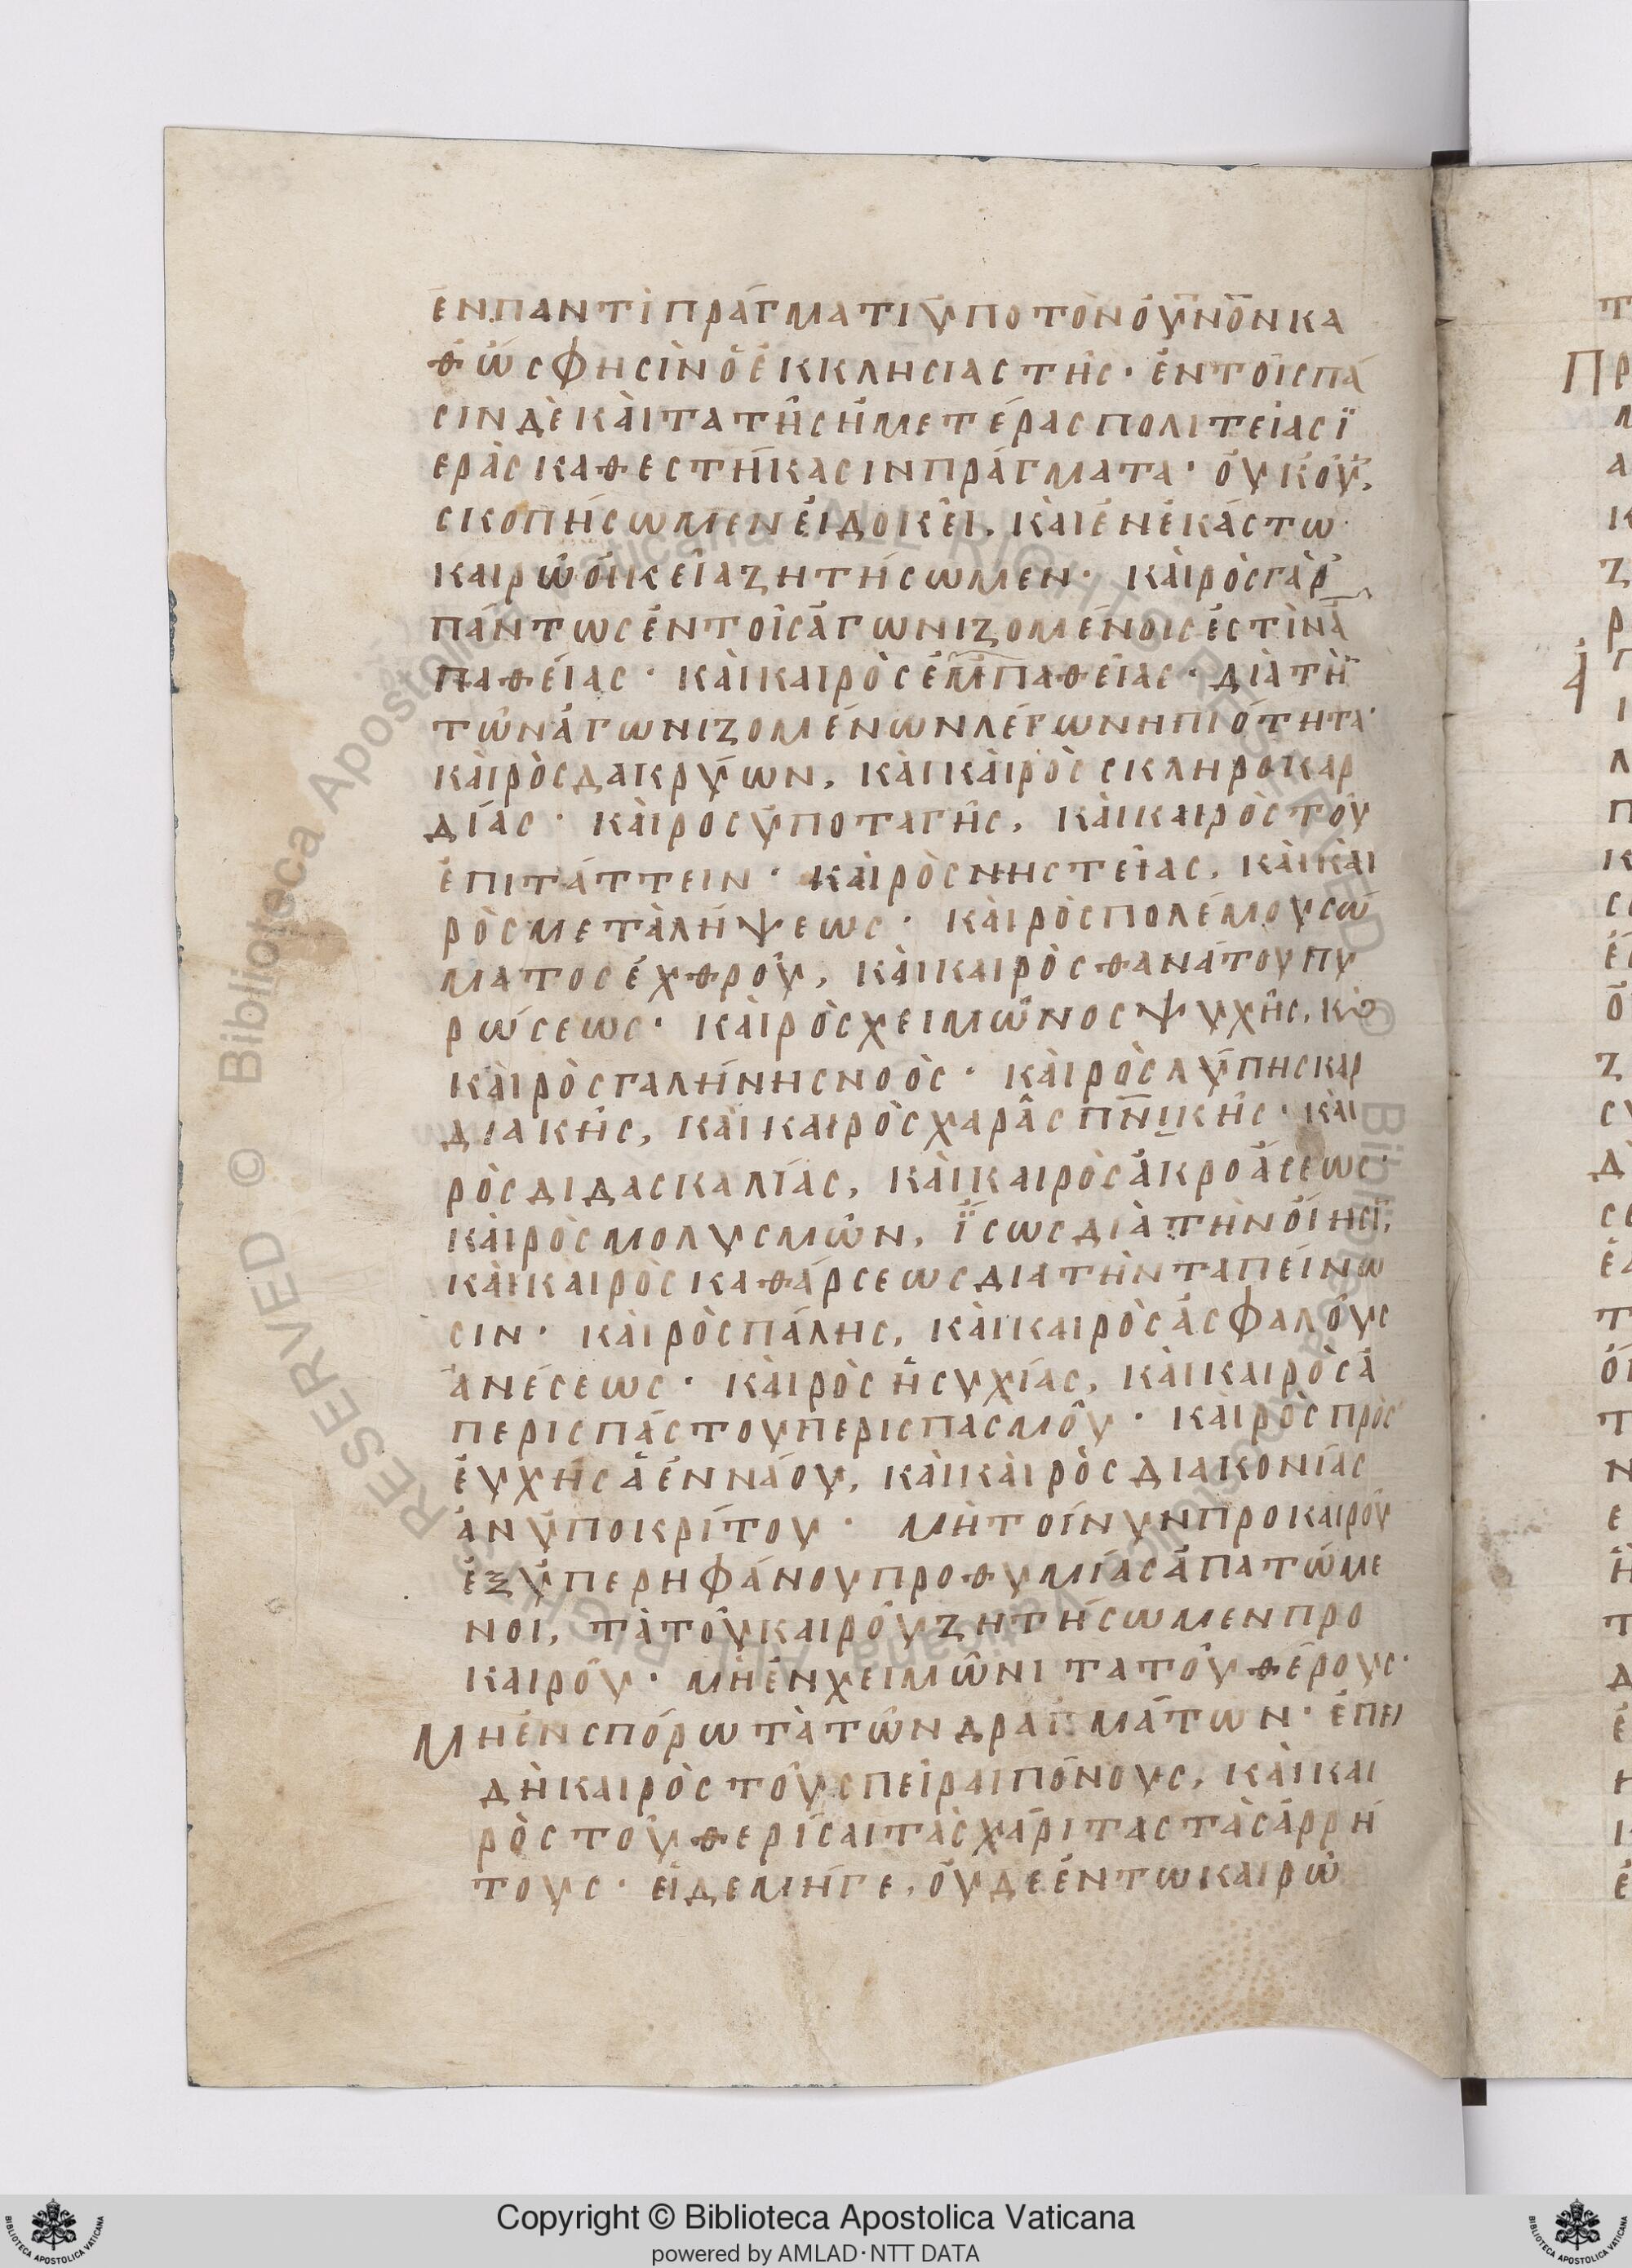 ἐν παντὶ πράγματι ὑπὸ τὸν οὐ̅ν̅ο̅ν κα
θὼς φησὶν ὁ ἐκκλησιαστής · ἐν τοῖς πᾶ
σιν δὲ καὶ τα τῆς ἡμετέρας πολιτείας ϊ
ερὰς καθεστήκασιν πράγματα · οὐκοῦν,
σκοπήσωμεν εἰ δοκεῖ, καὶ ἐν ἑκάστω
καιρῶ οἰκεῖα ζητήσωμεν · καὶρὸς γὰρ
πάντως ἐν τοῖς ἀγωνιζομένοις ἐστὶν ἀ
παθείας · καὶ καιρὸς ἐμπαθείας · διὰ τὴν
τῶν ἀγωνιζομένων λέγω νηπιότητα ·
καὶρὸς δακρύων, καὶ καὶρὸς σκληροκαρ
δίας · καὶρος ὑποταγῆς, καὶ καιρὸς τοῦ
ἐπιτάττειν · καὶρὸς νηστείας, καὶ και
ρὸς μεταλήψεως · καὶρὸς πολέμου σώ
ματος ἐχθροῦ, καὶ καιρὸς θανάτου πυ
ρώσεως · καὶρὸς χειμῶνος ψυχῆς, κὶ
καὶρὸς γαλήνης νοὸς · καὶρὸς λύπης καρ
διακῆς, καὶ καιρὸς χαρᾶς π̅ν̅ικῆς · καὶ
ρὸς διδασκαλίας, καὶ καιρὸς ἀκροάσεως ·
καὶρὸς μολυσμῶν, ἴσως διὰ τὴν οἴησιν,
καὶ καιρὸς καθάρσεως δια τὴν ταπείνω
σιν · καὶρὸς πάλης, καὶ καιρὸς ἀσφαλοῦς
ἀνέσεως · καὶρὸς ἡσυχίας, καὶ καιρὸς ἀ
περισπάστου περισπασμοῦ · καὶρὸς προς
ευχῆς ἀεννάου, καὶ καὶρὸς διακονίας
ἀνυποκρίτου · Μὴ τοίνυν προ καιροῦ
ἐξ ὑπερηφάνου προθυμίας ἀπατώμε
νοι, τὰ τοῦ καιροῦ ζητήσωμεν προ
καιροῦ · μὴ ἐν χειμῶνι τα τοῦ θέρους ·
Μὴ ἐν σπόρω τὰ τῶν δραγμάτων · ἐπει
δὴ καιρὸς τοῦ σπεῖραι πόνους, καὶ και
ρὸς τοῦ θερίσαι τὰς χάριτας τὰς ἀρρή
τους · εἰ δε μήγε, οὐδε ἐν τω καιρῶ